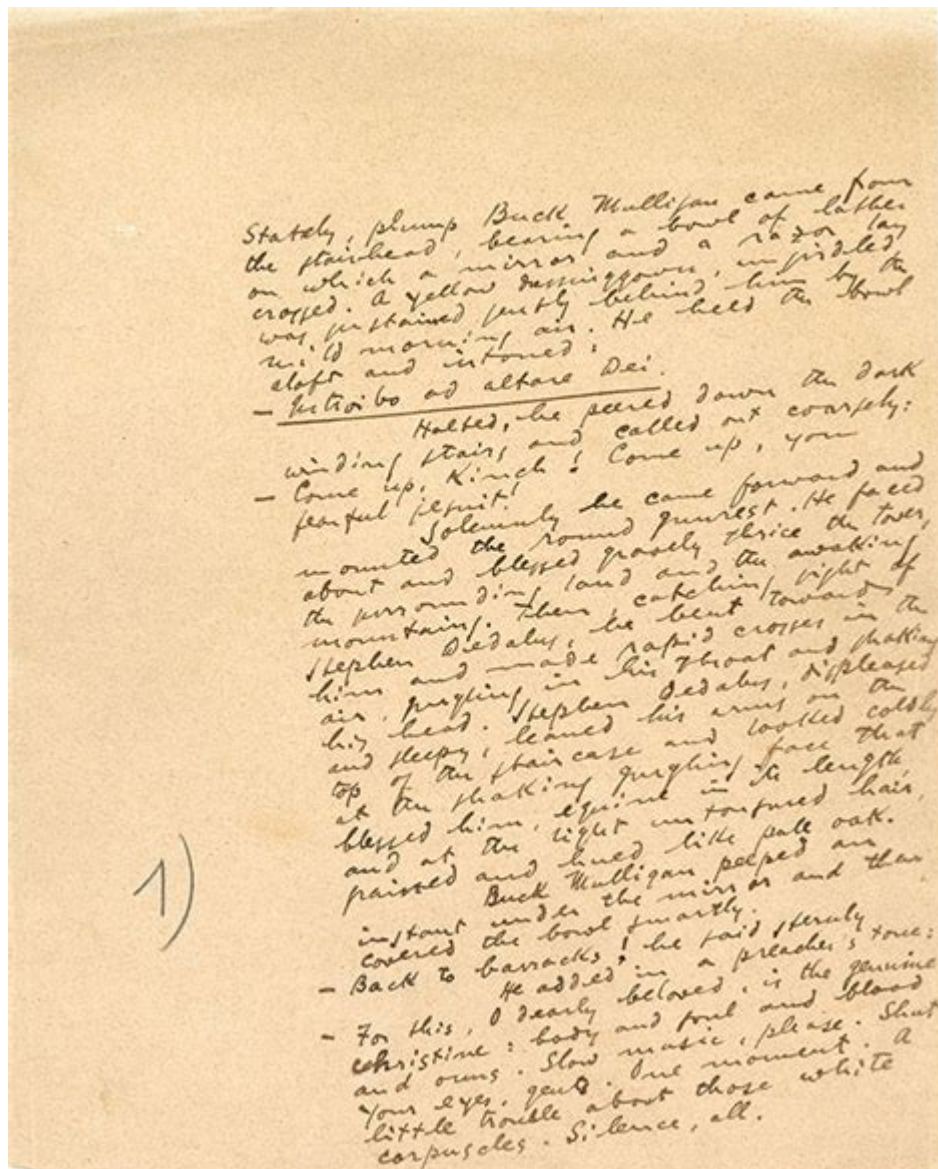 Stately, plump Buck Mulligan came from
the stairhead, bearing a bowl of lather
on which a mirror and a razor lay
crossed. A yellow dressinggown, ungirdled,
was sustained gently behind him by the
mild morning air. He held the bowl
aloft and intoned:
– Introibo ad altare Dei.
Halted, he peered down the dark
winding stairs and called out coarsely:
– Come up, Kinch! Come up, you
fearful jesuit!
Solemnly he came forward and
mounted the round gunrest. He faced
about and blessed gravely thrice the tower,
the surrounding land and the awaking
mountains. Then, catching sight of
Stephen Dedalus, he bent towards
him and made rapid crosses in the
air, gurgling in his throat and shaking
his head. Stephen Dedalus, displeased
and sleepy, leaned his arms on the
top of the staircase and looked coldly
at the shaking gurgling face that
blessed him, equine in its length,
and at the light untonsured hair,
grained and hued like pale oak.
Buck Mulligan peeped an
instant under the mirror and then
covered the bowl smartly.
– Back to barracks! he said sternly
He added in a preacher's tone:
– For this, O dearly beloved, is the genuine
christine: body and soul and blood
and ouns. Slow music, please. Shut
your eyes, gents. One moment. A
little trouble about those white
corpuscles. Silence, all.
1)